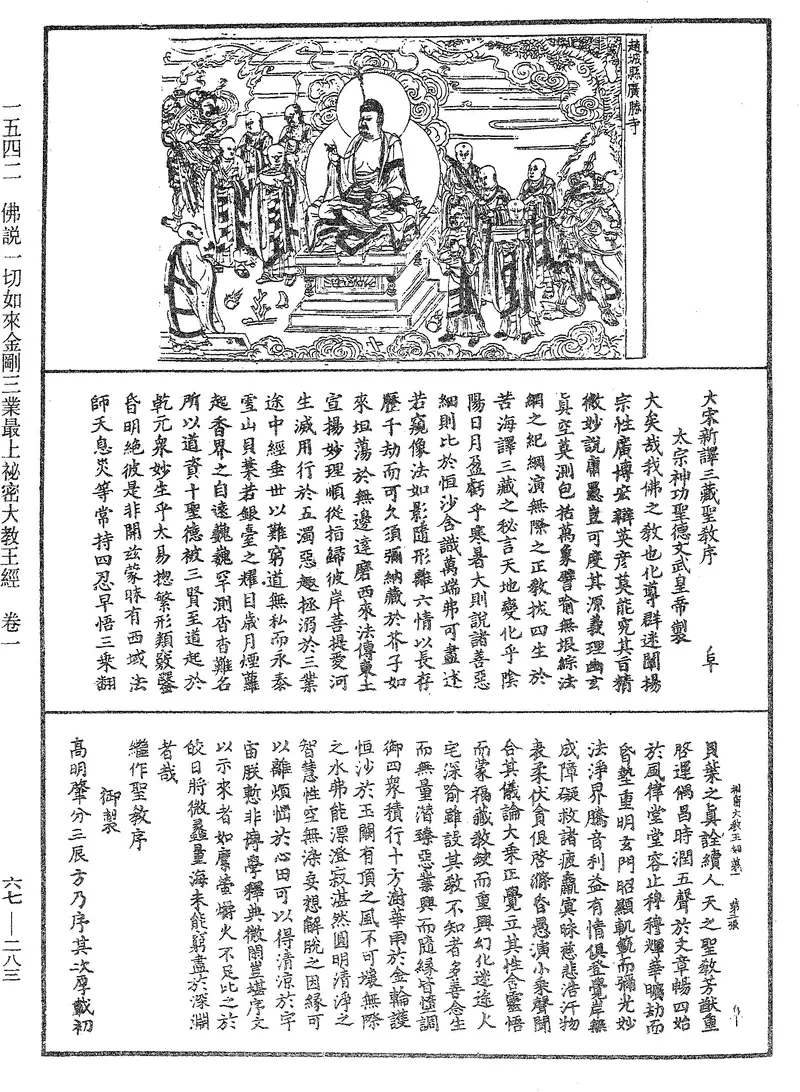 趙城縣廣勝寺
大宋新譯三藏聖教序
太宗神功聖德文武皇帝製 阜
大矣哉我佛之教也化導群迷闡揚
宗性廣博宏辯英彥莫能究其旨精
微妙說庸愚豈可度其源義理幽玄
真空莫測包括萬象譬喻無垠綜法
網之紀綱演無際之正教拔四生於
苦海譯三藏之秘言天地變化乎陰
陽日月盈虧乎寒暑大則說諸善惡
細則比於恒沙含識萬端弗可盡述
若窺像法如影隨形離六情以長存
歷千劫而可久須彌納藏於芥子如
來坦蕩於無邊達磨西來法傳東土
宣揚妙理順從指歸彼岸菩提愛河
生滅用行於五濁惡趣拯溺於三業
途中經垂世以難窮道無私而永泰
雪山貝葉若銀臺之耀目歲月煙蘿
起香界之自遠巍巍罕測杳杳難名
所以道資十聖德被三賢至道起於
乾元衆妙生乎太易揔繁形類竅鑿
昏明絕彼是非開茲蒙昧有西域法
師天息災等常持四忍早悟三乘翻
第二張
貝葉之真詮續人天之聖教芳猷重
啓運偶昌時潤五聲於文章暢四始
於風律堂堂容止穆穆輝華曠劫而
昏墊重明玄門昭顯軌範而彌光妙
法淨界騰音利益有情俱登覺岸無
成障礙救諸疲羸冥昧慈悲浩汗物
表柔伏貪佷啓滌昏愚演小乘聲聞
合其儀論大乘正覺立其性含靈悟
而蒙福藏教缺而重興幻化迷途火
宅深喻雖設其教不知者多善念生
而無量潛臻惡業興而隨緣皆墮調
御四衆積行十方澍華雨於金輪護
恒沙於玉闕有頂之風不可壞無際
之水弗能漂澄寂湛然圓明清淨之
智慧性空無染妄想解脫之因緣可
以離煩惱於心田可以得清涼於宇
宙朕慙非博學釋典微閑豈堪序文
以示來者如縻螢爝火不足比之於
皎日將微蠡量海未能窮盡於深淵
者哉
繼作聖教序
御製
高明肇分三辰方乃序其次厚載初
一五四二 佛說一切如來金剛三業最上祕密大教王經 卷一 六七—二八三